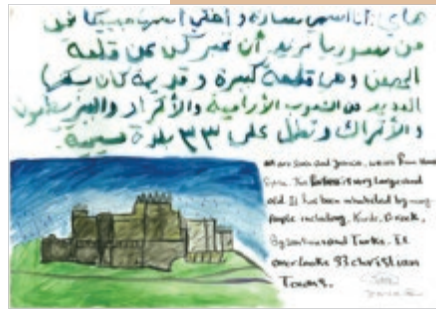 هاي: أنا اسمي سارة و أختي اسمها جيسيكا نحن
من سوريا نريد أن نخبركن عن قلعة
الحصن وهي قلعة كبيرة و قديمة كان يسكنها
العديد من الشعوب الآرامية والأكراد والبيزنطيون
والأتراك وتطل على ٣٣ بلدة مسيحية
are Sara and Jessica, we are from
Syria. The fortress is very large and
old. It has been inhabited by many
people including, Kurds, Greek,
Byzantine and Turks. It
overlooks 33 christian
Towns.